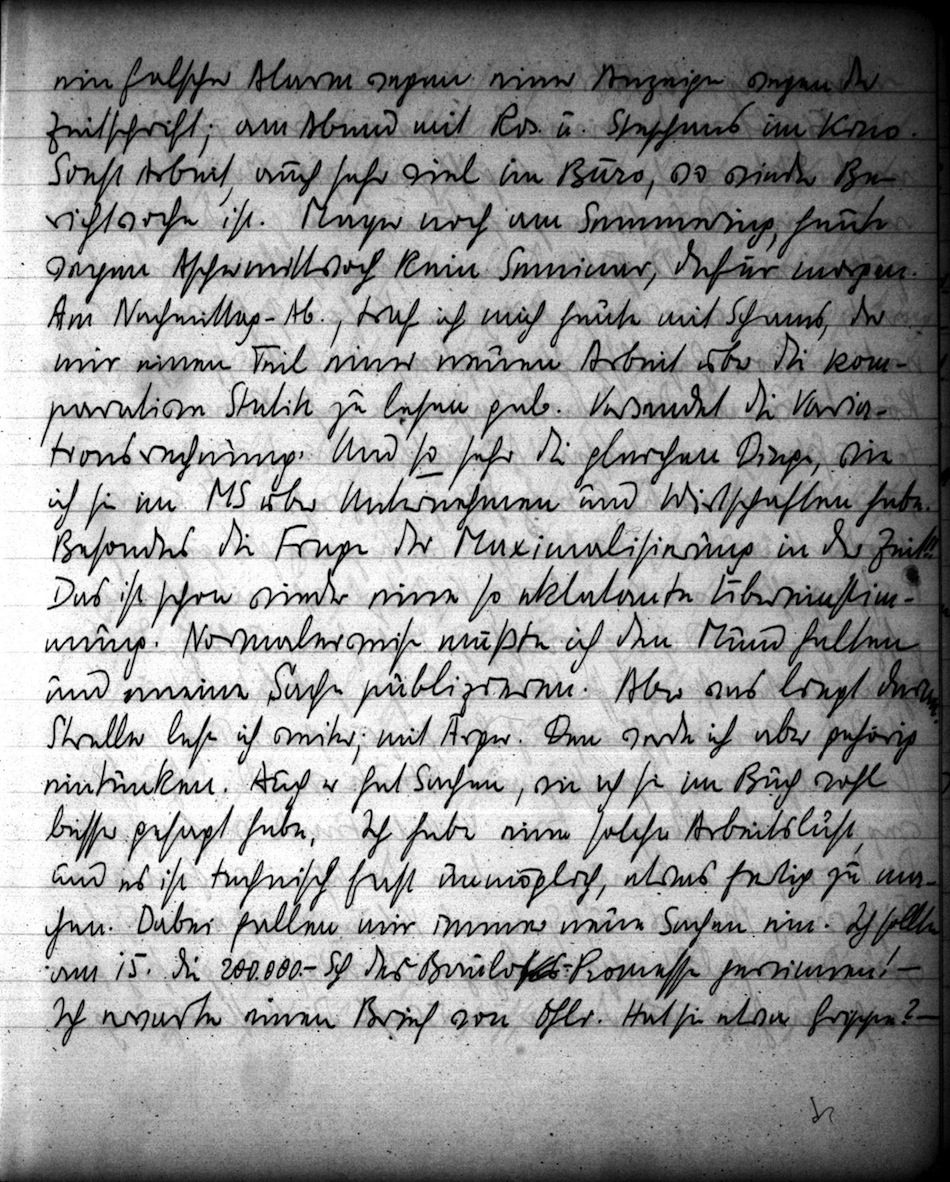 ein falscher Alarm wegen einer Anzeige wegen der
Zeitschrift; am Abend mit Ros. u. Stephans im Kino.
Sonst Arbeit, auch sehr viel im Büro, wo wieder Be-
richtswoche ist. Mayer noch am Semmering, heute
wegen Aschermittwoch kein Seminar, dafür morgen.
Am Nachmittag-Ab., traf ich mich heute mit Schams, der
mir einen Teil einer neuen Arbeit über die kom-
parative Statik zu lesen gab. Verwendet die Varia-
tionsrechnung. Und so sehr die gleichen Dinge, wie
ich sie im MS über Unternehmen und Wirtschaften habe.
Besonders die Frage der Maximalisierung in der Zeit!!
Das ist schon wieder eine so eklatante Übereinstim-
mung. Normalerweise müßte ich den Mund halten
und meine Sache publizieren. Aber was liegt daran.
Streller lese ich weiter; mit Ärger. Den werde ich aber gehörig
eintunken. Auch er hat Sachen, wie ich sie im Buch wohl
besser gesagt habe. Ich habe eine solche Arbeitslust,
und es ist technisch fast unmöglich, etwas fertig zu ma-
chen. Dabei fallen mir immer neue Sachen ein. Ich sollte
am 15. die 200.000.- Sch des Baulos-Promesse gewinnen! —
Ich erwarte einen Brief von Ohlr. Hat sie etwa Grippe? —